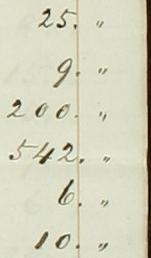 25. "
9. "
200. "
542. "
6. "
10. "